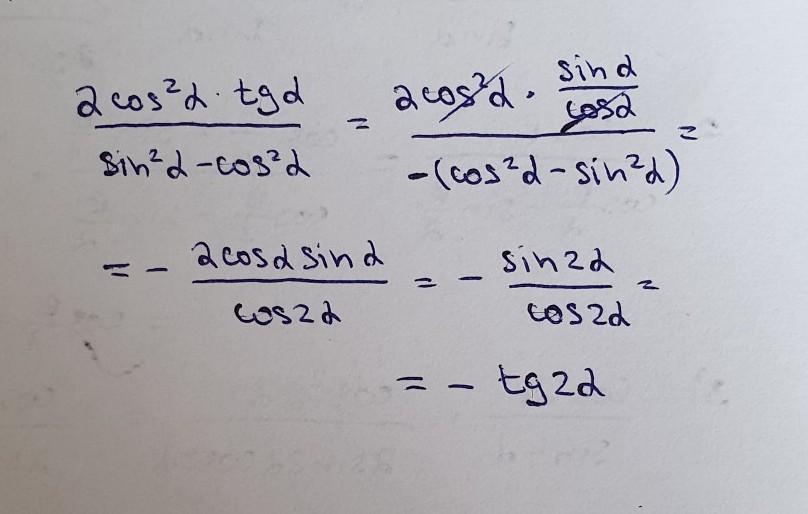 2cos²α · tgα / sin²α - cos²α = 2cos²α · sinα/cosα / -(cos²α - sin²α) =
= - 2cosα sinα / cos2α = - sin2α / cos2α =
= - tg2α